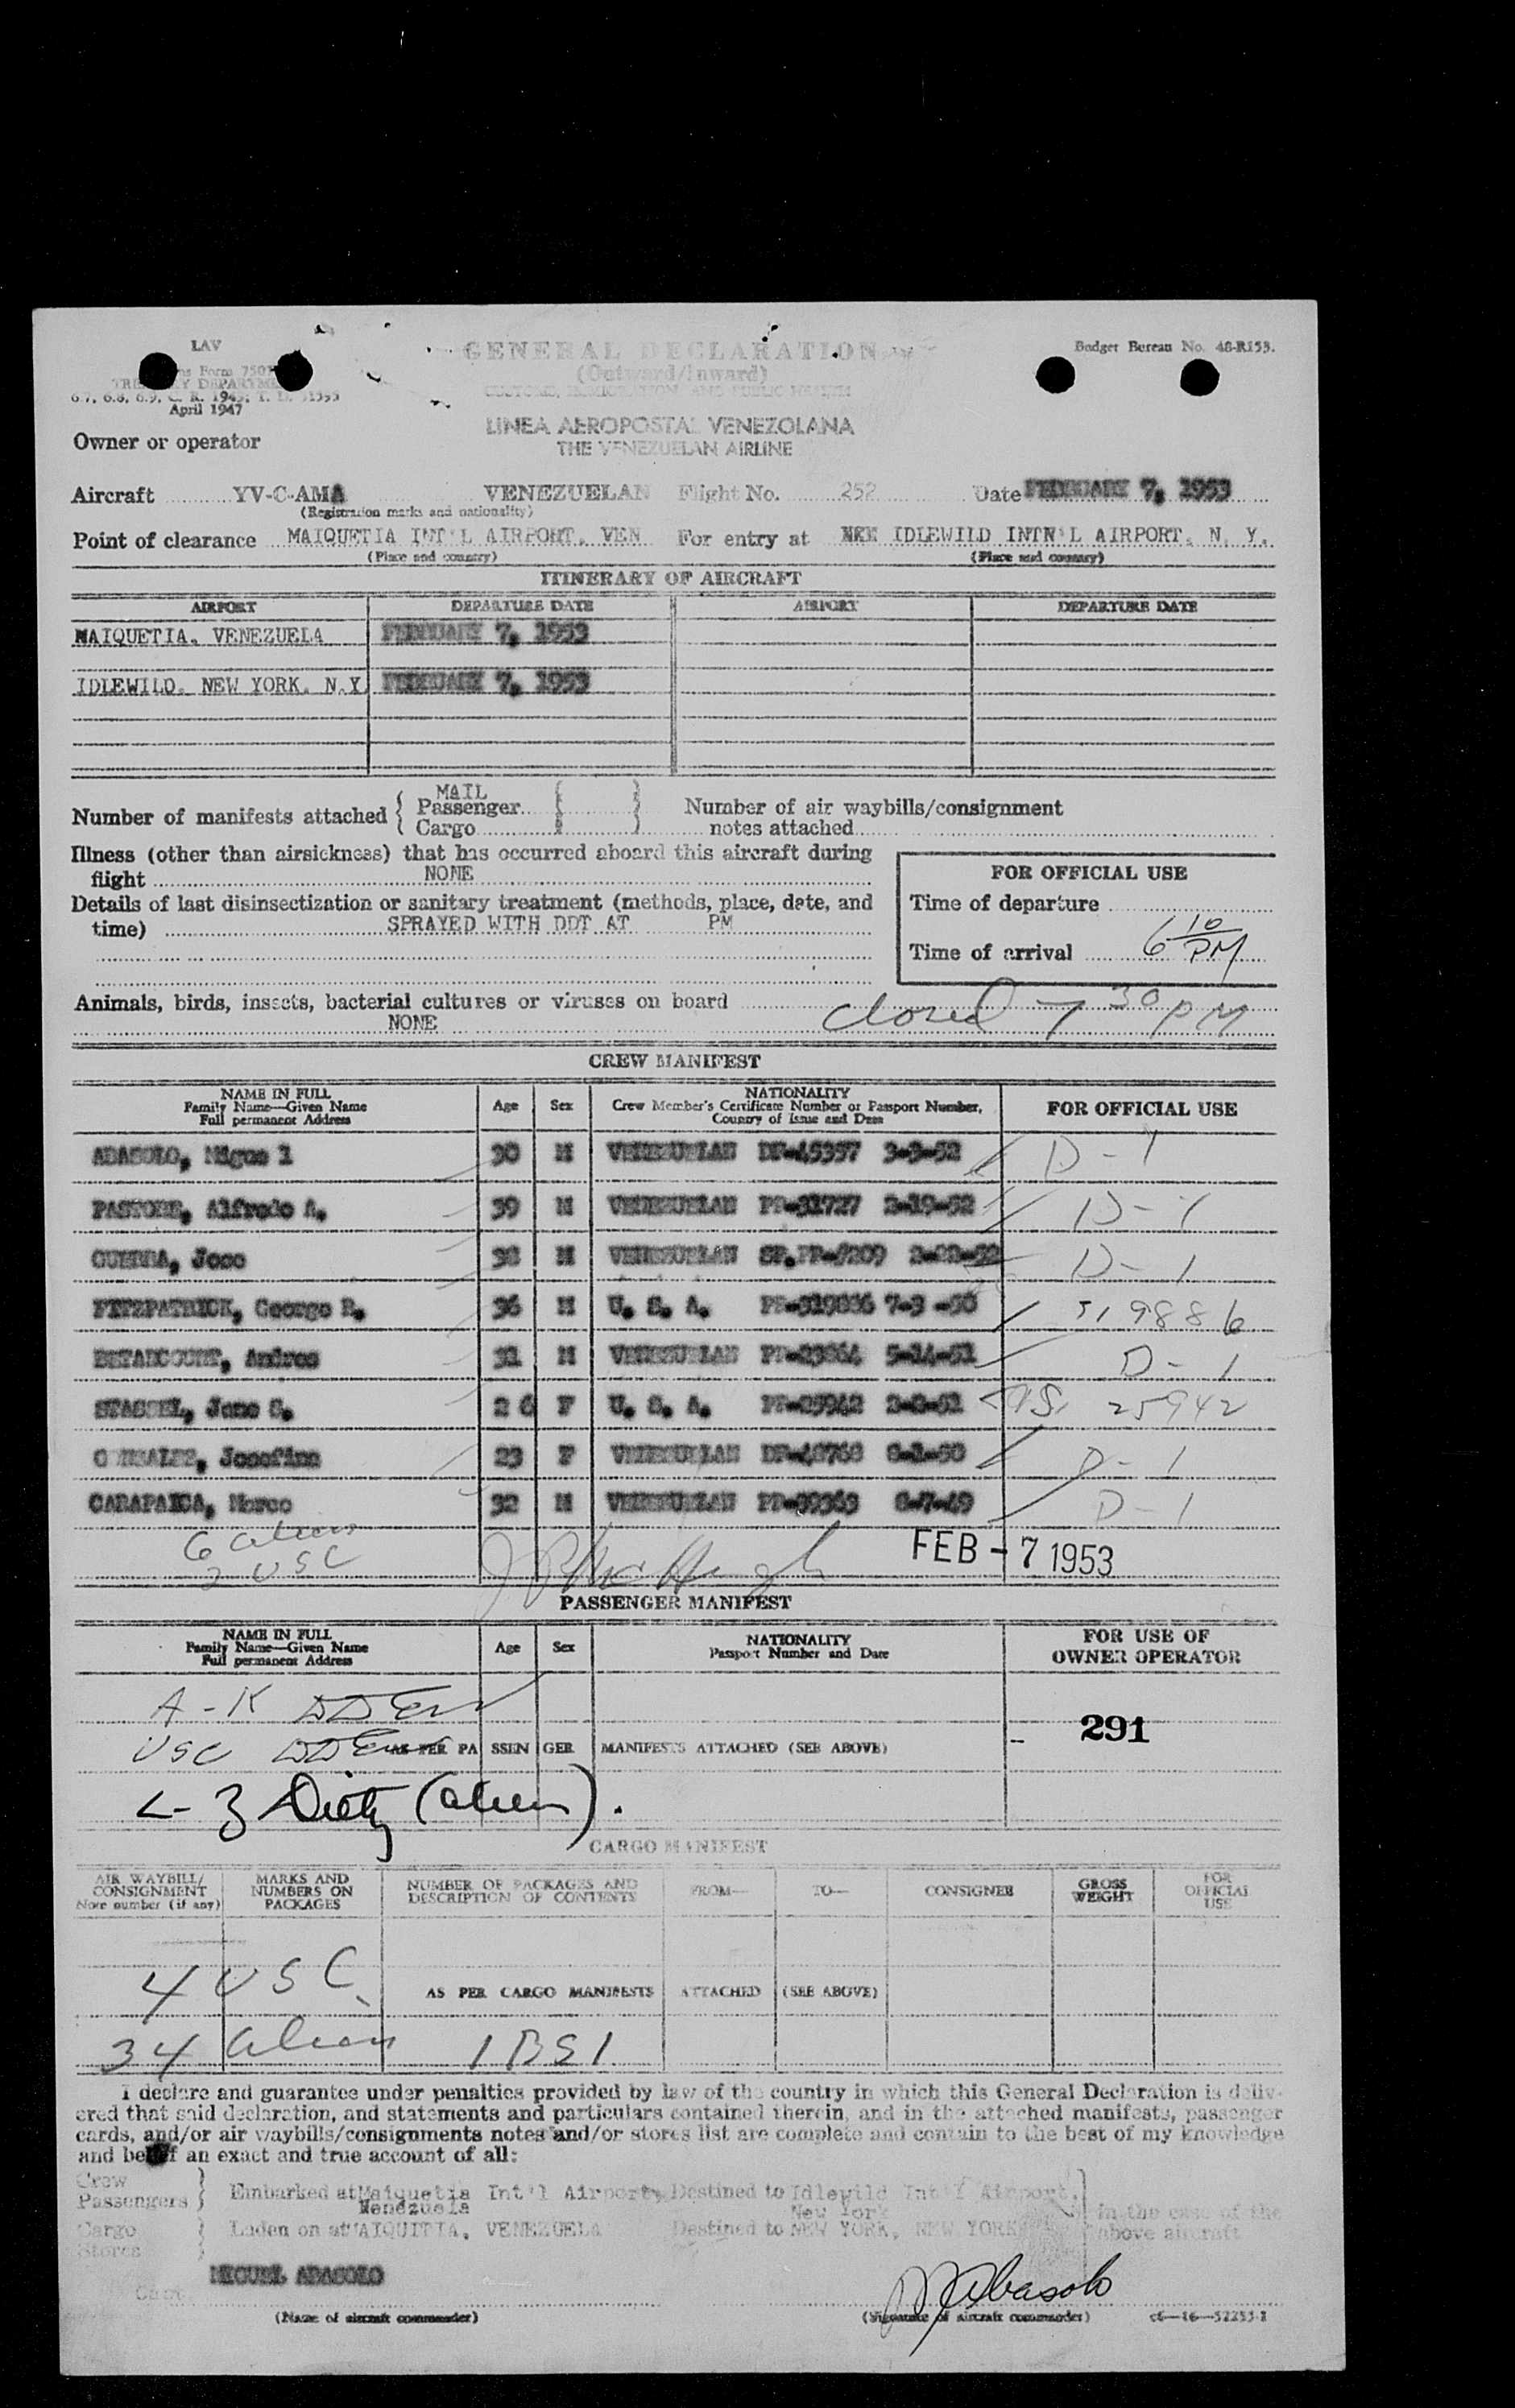 LAV
GENERAL DECLARATION
Budget Bureau No. 48-R153.
(Outward/Inward)
TREASURY DEPARTMENT
CUSTOMS, IMMIGRATION, AND PUBLIC HEALTH
April 1947
LINEA AEROPOSTAL VENEZOLANA
Owner or operator
THE VENEZUELAN AIRLINE
Aircraft YV-C-AMA VENEZUELAN Flight No. 252 Date FEBRUARY 7, 1953
(Registration marks and nationality)
Point of clearance MAIQUETIA INT'L AIRPORT. VEN For entry at IDLEWILD INTN'L AIRPORT. N. Y.
(Place and country) (Place and country)
ITINERARY OF AIRCRAFT
AIRPORT DEPARTURE DATE AIRPORT DEPARTURE DATE
MAIQUETIA. VENEZUELA FEBRUARY 7, 1953
IDLEWILD. NEW YORK. N.Y. FEBRUARY 7, 1953
MAIL
Number of manifests attached Passenger Number of air waybills/consignment
Cargo notes attached
Illness (other than airsickness) that has occurred aboard this aircraft during
flight NONE
FOR OFFICIAL USE
Details of last disinsectization or sanitary treatment (methods, place, date, and
time) SPRAYED WITH DDT AT PM
Time of departure
Time of arrival 6 10 PM
Animals, birds, insects, bacterial cultures or viruses on board
NONE
Closed 7 30 PM
CREW MANIFEST
NAME IN FULL
Family Name—Given Name
Full permanent Address
Age Sex
NATIONALITY
Crew Member's Certificate Number or Passport Number,
Country of Issue and Date
FOR OFFICIAL USE
ABASOLO, Miguel 30 M VENEZUELAN 3-3-52 D-1
PASTORE, Alfredo A. 39 M VENEZUELAN PP-31727 2-19-52 D-1
GUERRA, Jose M VENEZUELAN D-1
FITZPATRICK, George R. 36 M U. S. A. 319886
BETANCOURT, Andres M VENEZUELAN 5-14-51 D-1
STASSEL, Jane C. 26 F U. S. A. PP-25942 25942
GONZALEZ, Josefina F VENEZUELAN D-1
CARAPAICA, Marco 32 M VENEZUELAN D-1
6 alien
2 USC
FEB - 7 1953
PASSENGER MANIFEST
NAME IN FULL
Family Name—Given Name
Full permanent Address
Age Sex
NATIONALITY
Passport Number and Date
FOR USE OF
OWNER OPERATOR
A - K
USC
AS PER PASSENGER MANIFESTS ATTACHED (SEE ABOVE)
291
L - Z Dietz (alien).
CARGO MANIFEST
AIR WAYBILL/
CONSIGNMENT
Note number (if any)
MARKS AND
NUMBERS ON
PACKAGES
NUMBER OF PACKAGES AND
DESCRIPTION OF CONTENTS
FROM—
TO—
CONSIGNEE
GROSS
WEIGHT
FOR
OFFICIAL
USE
4 USC
AS PER CARGO MANIFESTS ATTACHED (SEE ABOVE)
34 alien
I declare and guarantee under penalties provided by law of the country in which this General Declaration is deliv-
ered that said declaration, and statements and particulars contained therein, and in the attached manifests, passenger
cards, and/or air waybills/consignments notes and/or stores list are complete and contain to the best of my knowledge
and belief an exact and true account of all:
Crew
Passengers Embarked at Maiquetia Int'l Airport, Destined to Idlewild Int'l Airport,
Venezuela New York
In the case of the
Cargo Laden on at MAIQUITIA, VENEZUELA Destined to NEW YORK, NEW YORK above aircraft
Stores
MIGUEL ABASOLO
Capt.
M Abasolo
(Name of aircraft commander) (Signature of aircraft commander)